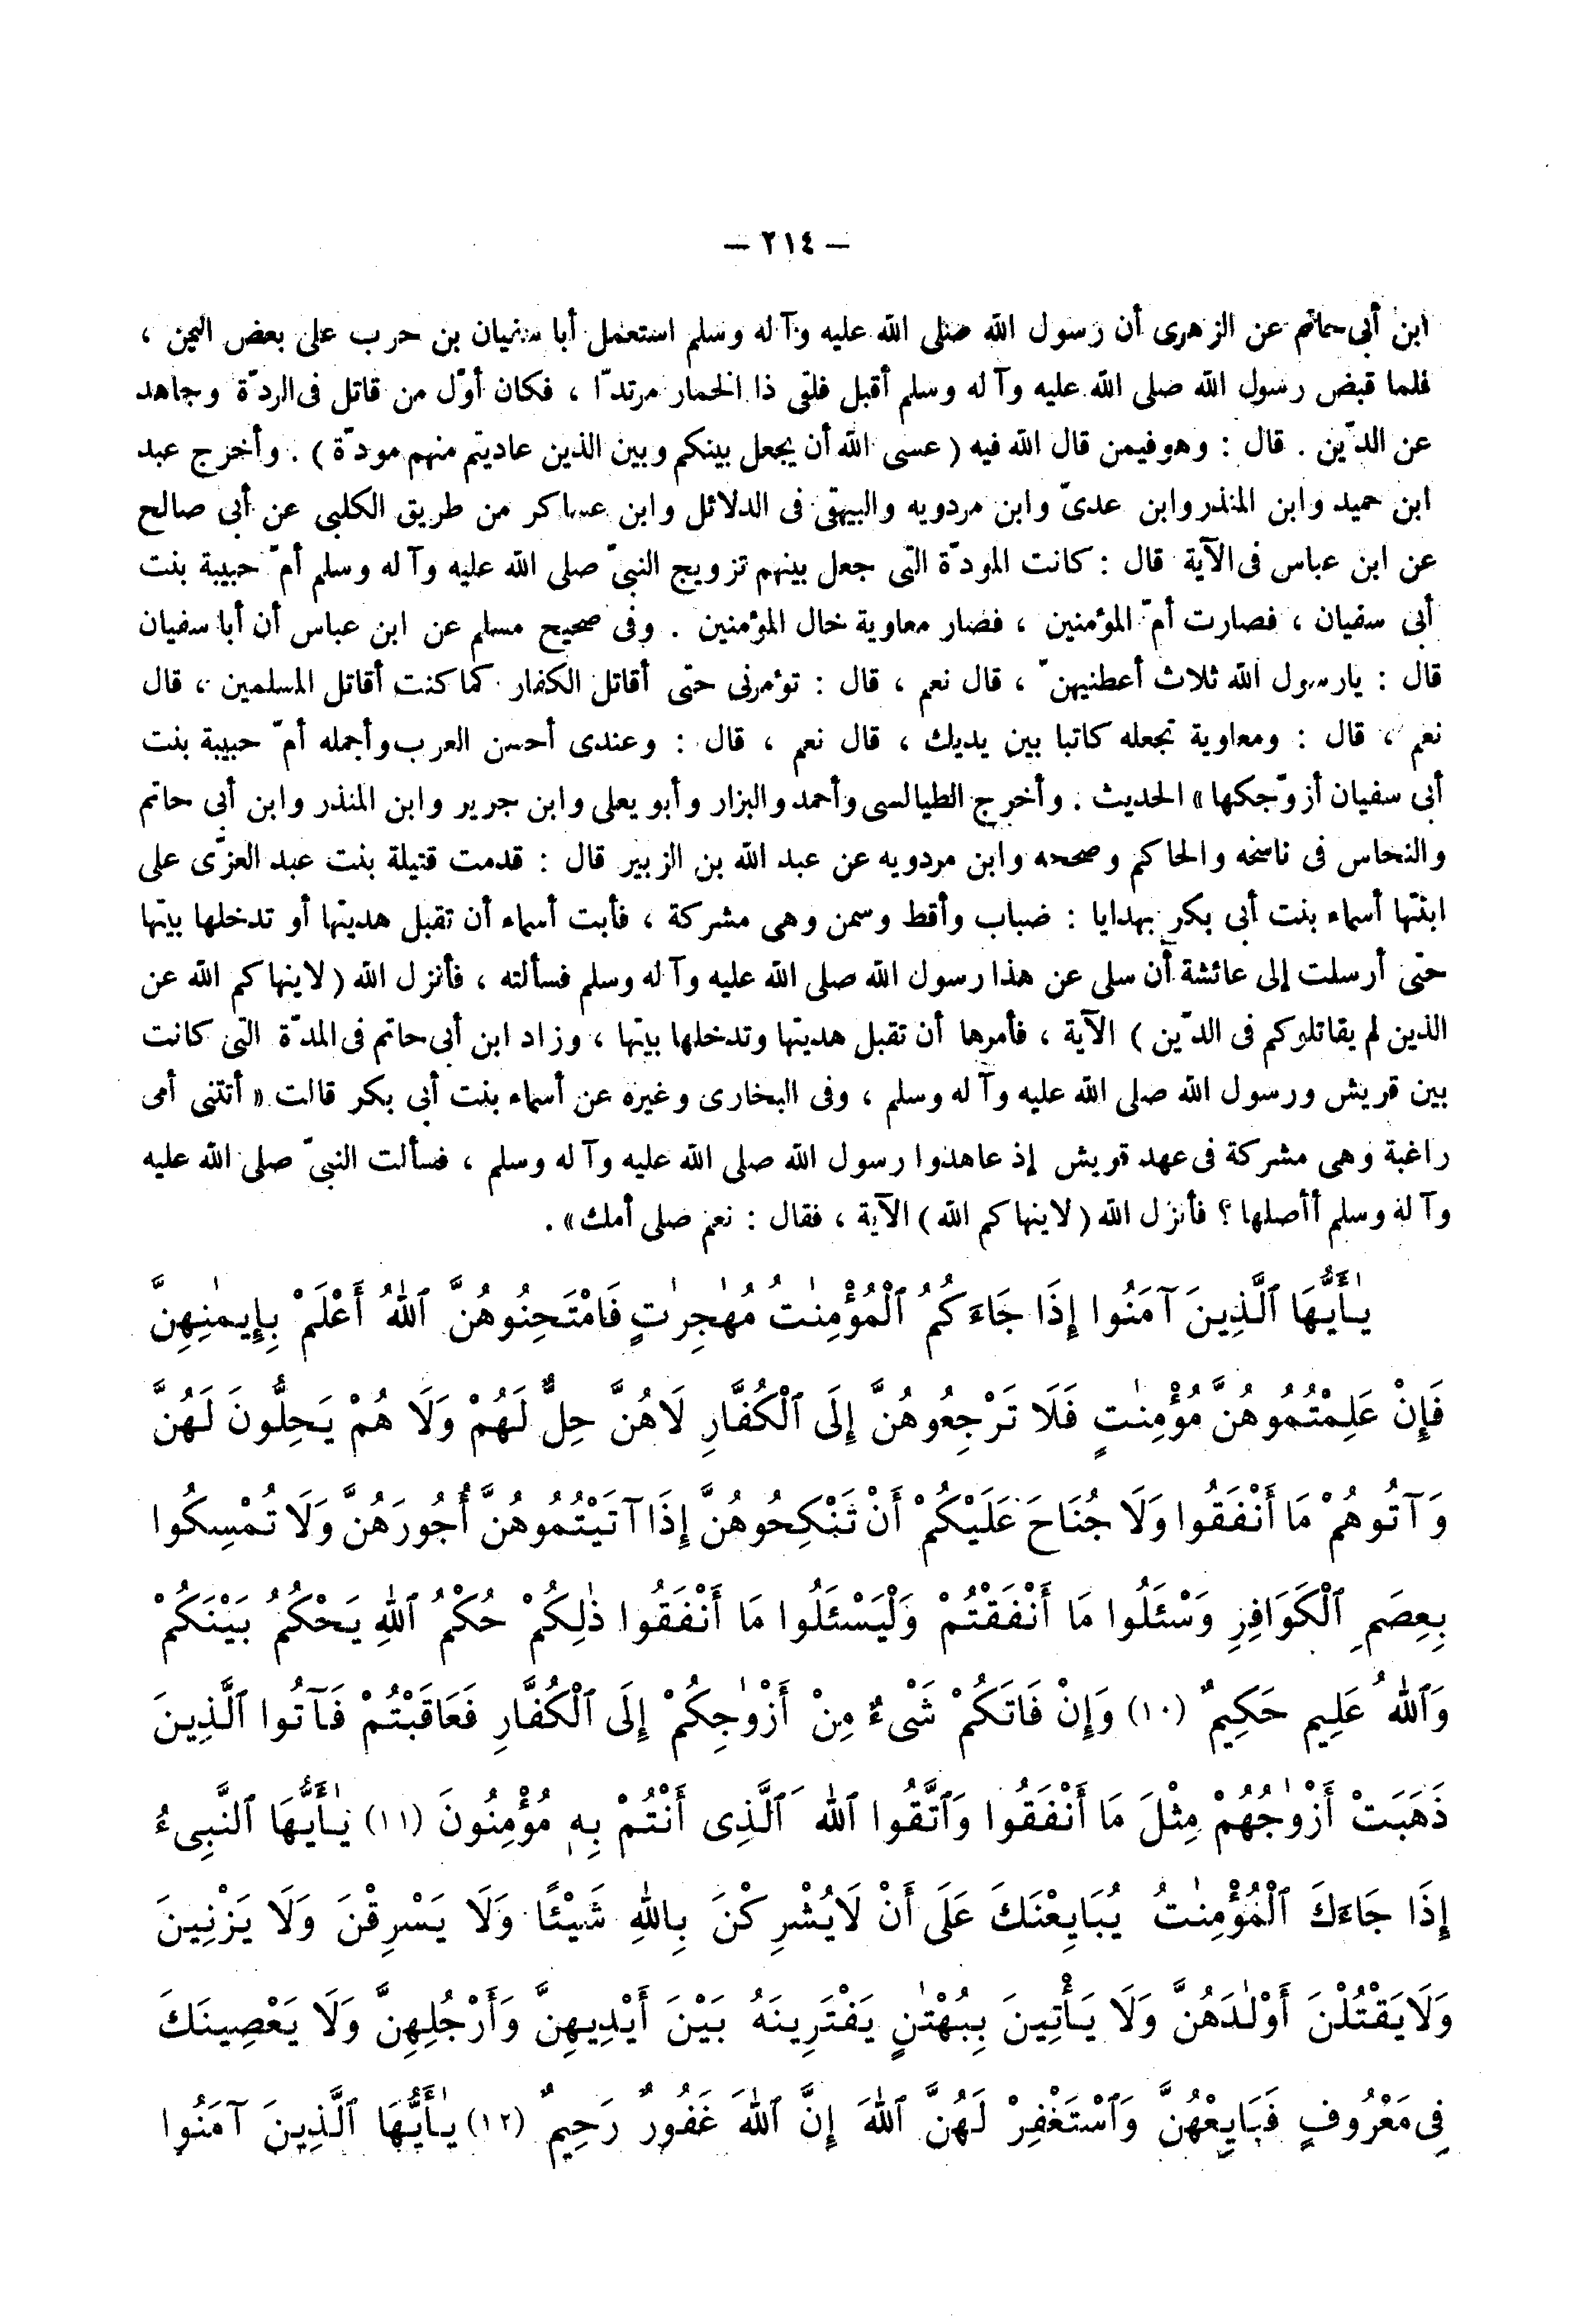 — ٢١٤ —
ابن أبى حاتم عن الزهرى أن رسول الله صلى الله عليه وآله وسلم استعمل أبا سفيان بن حرب على بعض اليمن ،
فلما قبض رسول الله صلى الله عليه وآله وسلم أقبل فلقى ذا الخمار مرتدّا ، فكان أوّل من قاتل فى الردّة وجاهد
عن الدّين . قال : وهو فيمن قال الله فيه ( عسى الله أن يجعل بينكم وبين الذين عاديتم منهم مودّة ) . وأخرج عبد
ابن حميد وابن المنذر وابن عدىّ وابن مردويه والبيهقى فى الدلائل وابن عساكر من طريق الكلبى عن أبى صالح
عن ابن عباس فى الآية قال : كانت المودّة التى جعل بينهم تزويج النبىّ صلى الله عليه وآله وسلم أمّ حبيبة بنت
أبى سفيان ، فصارت أمّ المؤمنين ، فصار معاوية خال المؤمنين . وفى صحيح مسلم عن ابن عباس أن أبا سفيان
قال : يارسول الله ثلاث أعطنيهنّ ، قال نعم ، قال : تؤمرنى حتى أقاتل الكفار كما كنت أقاتل المسلمين ، قال
نعم ، قال : ومعاوية تجعله كاتبا بين يديك ، قال نعم ، قال : وعندى أحسن العرب وأجمله أمّ حبيبة بنت
أبى سفيان أزوّجكها » الحديث . وأخرج الطيالسى وأحمد والبزار وأبو يعلى وابن جرير وابن المنذر وابن أبى حاتم
والنحاس فى ناسخه والحاكم وصححه وابن مردويه عن عبد الله بن الزبير قال : قدمت قتيلة بنت عبد العزّى على
ابنتها أسماء بنت أبى بكر بهدايا : ضباب وأقط وسمن وهى مشركة ، فأبت أسماء أن تقبل هديتها أو تدخلها بيتها
حتى أرسلت إلى عائشة أن سلى عن هذا رسول الله صلى الله عليه وآله وسلم فسألته ، فأنزل الله ( لاينهاكم الله عن
الذين لم يقاتلوكم فى الدّين ) الآية ، فأمرها أن تقبل هديتها وتدخلها بيتها ، وزاد ابن أبى حاتم فى المدّة التى كانت
بين قريش ورسول الله صلى الله عليه وآله وسلم ، وفى البخارى وغيره عن أسماء بنت أبى بكر قالت « أتتنى أمى
راغبة وهى مشركة فى عهد قريش إذ عاهدوا رسول الله صلى الله عليه وآله وسلم ، فسألت النبىّ صلى الله عليه
وآله وسلم أأصلها ؟ فأنزل الله ( لاينهاكم الله ) الآية ، فقال : نعم صلى أمك » .
يٰأَيُّهَا ٱلَّذِينَ آمَنُوا إِذَا جَاءَكُمُ ٱلْمُؤْمِنٰتُ مُهٰجِرٰتٍ فَامْتَحِنُوهُنَّ ٱللهُ أَعْلَمْ بِإِيمٰنِهِنَّ
فَإِنْ عَلِمْتُمُوهُنَّ مُؤْمِنٰتٍ فَلَا تَرْجِعُوهُنَّ إِلَى ٱلْكُفَّارِ لَاهُنَّ حِلٌّ لَهُمْ وَلَا هُمْ يَحِلُّونَ لَهُنَّ
وَآتُوهُمْ مَا أَنْفَقُوا وَلَا جُنَاحَ عَلَيْكُمْ أَنْ تَنْكِحُوهُنَّ إِذَا آتَيْتُمُوهُنَّ أُجُورَهُنَّ وَلَا تُمْسِكُوا
بِعِصَمِ ٱلْكَوَافِرِ وَسْئَلُوا مَا أَنْفَقْتُمْ وَلْيَسْئَلُوا مَا أَنْفَقُوا ذٰلِكُمْ حُكْمُ ٱللهِ يَحْكُمُ بَيْنَكُمْ
وَٱللهُ عَلِيم حَكِيمٌ (١٠) وَإِنْ فَاتَكُمْ شَىْءٌ مِنْ أَزْوٰجِكُمْ إِلَى ٱلْكُفَّارِ فَعَاقَبْتُمْ فَآتُوا ٱلَّذِينَ
ذَهَبَتْ أَزْوٰجُهُمْ مِثْلَ مَا أَنْفَقُوا وَٱتَّقُوا ٱللهَ ٱلَّذِى أَنْتُمْ بِهِ مُؤْمِنُونَ (١١) يٰأَيُّهَا ٱلنَّبِىءُ
إِذَا جَاءَكَ ٱلْمُؤْمِنٰتُ يُبَايِعْنَكَ عَلَى أَنْ لَايُشْرِكْنَ بِٱللهِ شَيْئًا وَلَا يَسْرِقْنَ وَلَا يَزْنِينَ
وَلَايَقْتُلْنَ أَوْلٰدَهُنَّ وَلَا يَأْتِينَ بِبُهْتٰنٍ يَفْتَرِينَهُ بَيْنَ أَيْدِيهِنَّ وَأَرْجُلِهِنَّ وَلَا يَعْصِينَكَ
فِى مَعْرُوفٍ فَبَايِعْهُنَّ وَٱسْتَغْفِرْ لَهُنَّ ٱللهَ إِنَّ ٱللهَ غَفُورٌ رَحِيمٌ (١٢) يٰأَيُّهَا ٱلَّذِينَ آمَنُوا